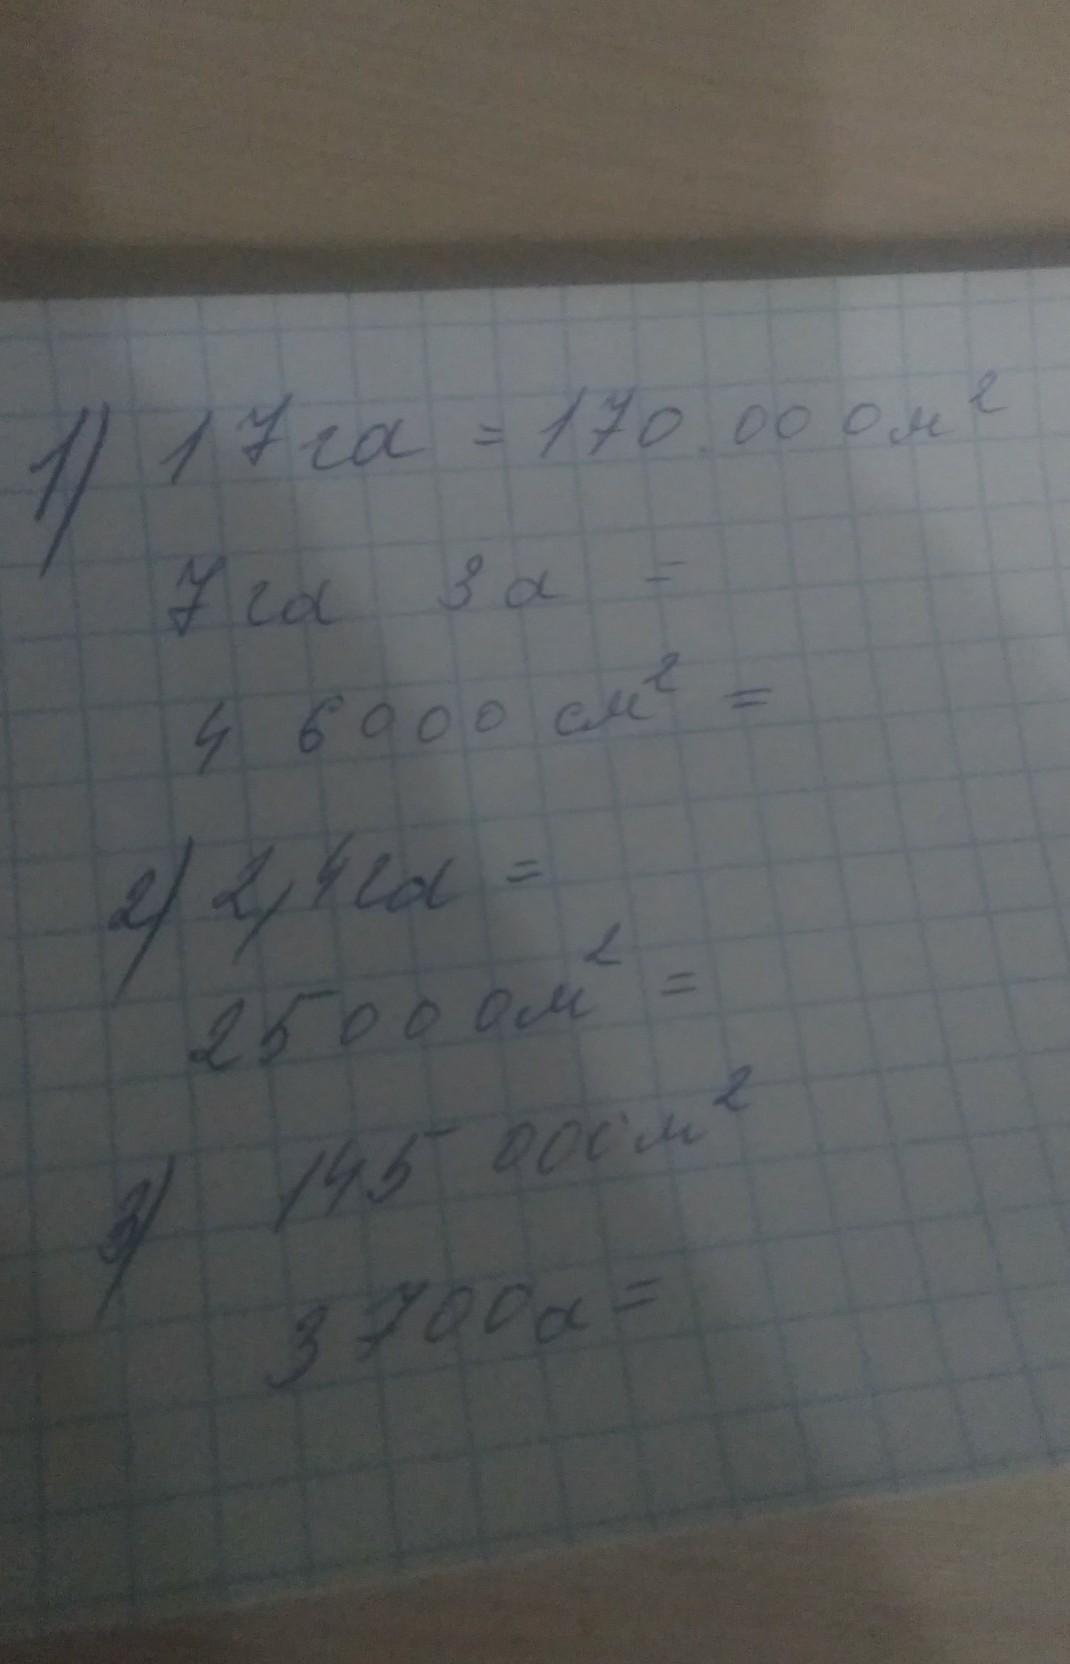 1) 17 га = 170.000 м²
7 га 3 а =
46000 см² =
2) 2,4 га =
25000 м² =
3) 145 000 м²
3700 а =